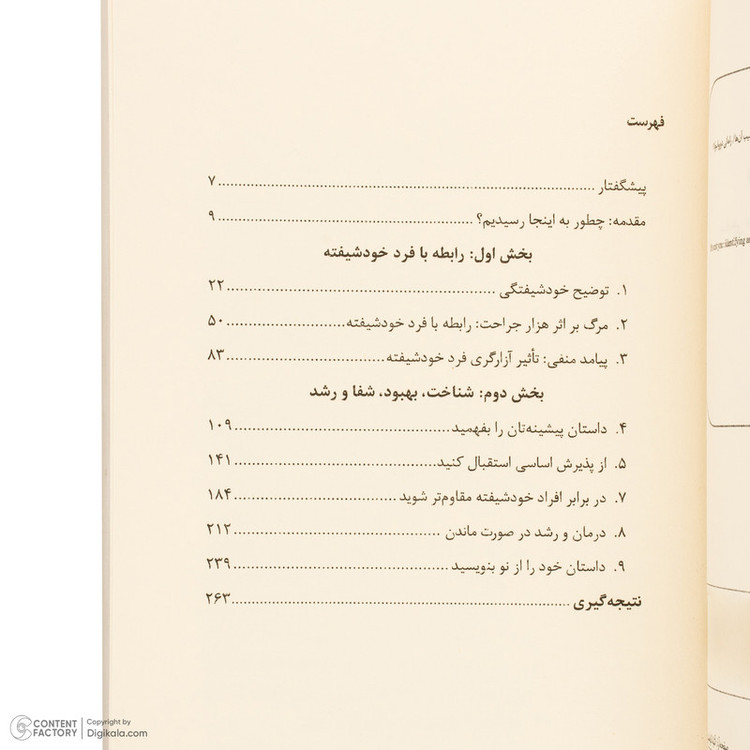 فهرست
پیشگفتار ................ ۷
مقدمه: چطور به اینجا رسیدیم؟ ................ ۹
بخش اول: رابطه با فرد خودشیفته
۱. توضیح خودشیفتگی ................ ۲۲
۲. مرگ بر اثر هزار جراحت: رابطه با فرد خودشیفته ................ ۵۰
۳. پیامد منفی: تأثیر آزارگری فرد خودشیفته ................ ۸۳
بخش دوم: شناخت، بهبود، شفا و رشد
۴. داستان پیشینه‌تان را بفهمید ................ ۱۰۹
۵. از پذیرش اساسی استقبال کنید ................ ۱۴۱
۷. در برابر افراد خودشیفته مقاوم‌تر شوید ................ ۱۸۴
۸. درمان و رشد در صورت ماندن ................ ۲۱۲
۹. داستان خود را از نو بنویسید ................ ۲۳۹
نتیجه‌گیری ................ ۲۶۳
CONTENT FACTORY
Copyright by
Digikala.com